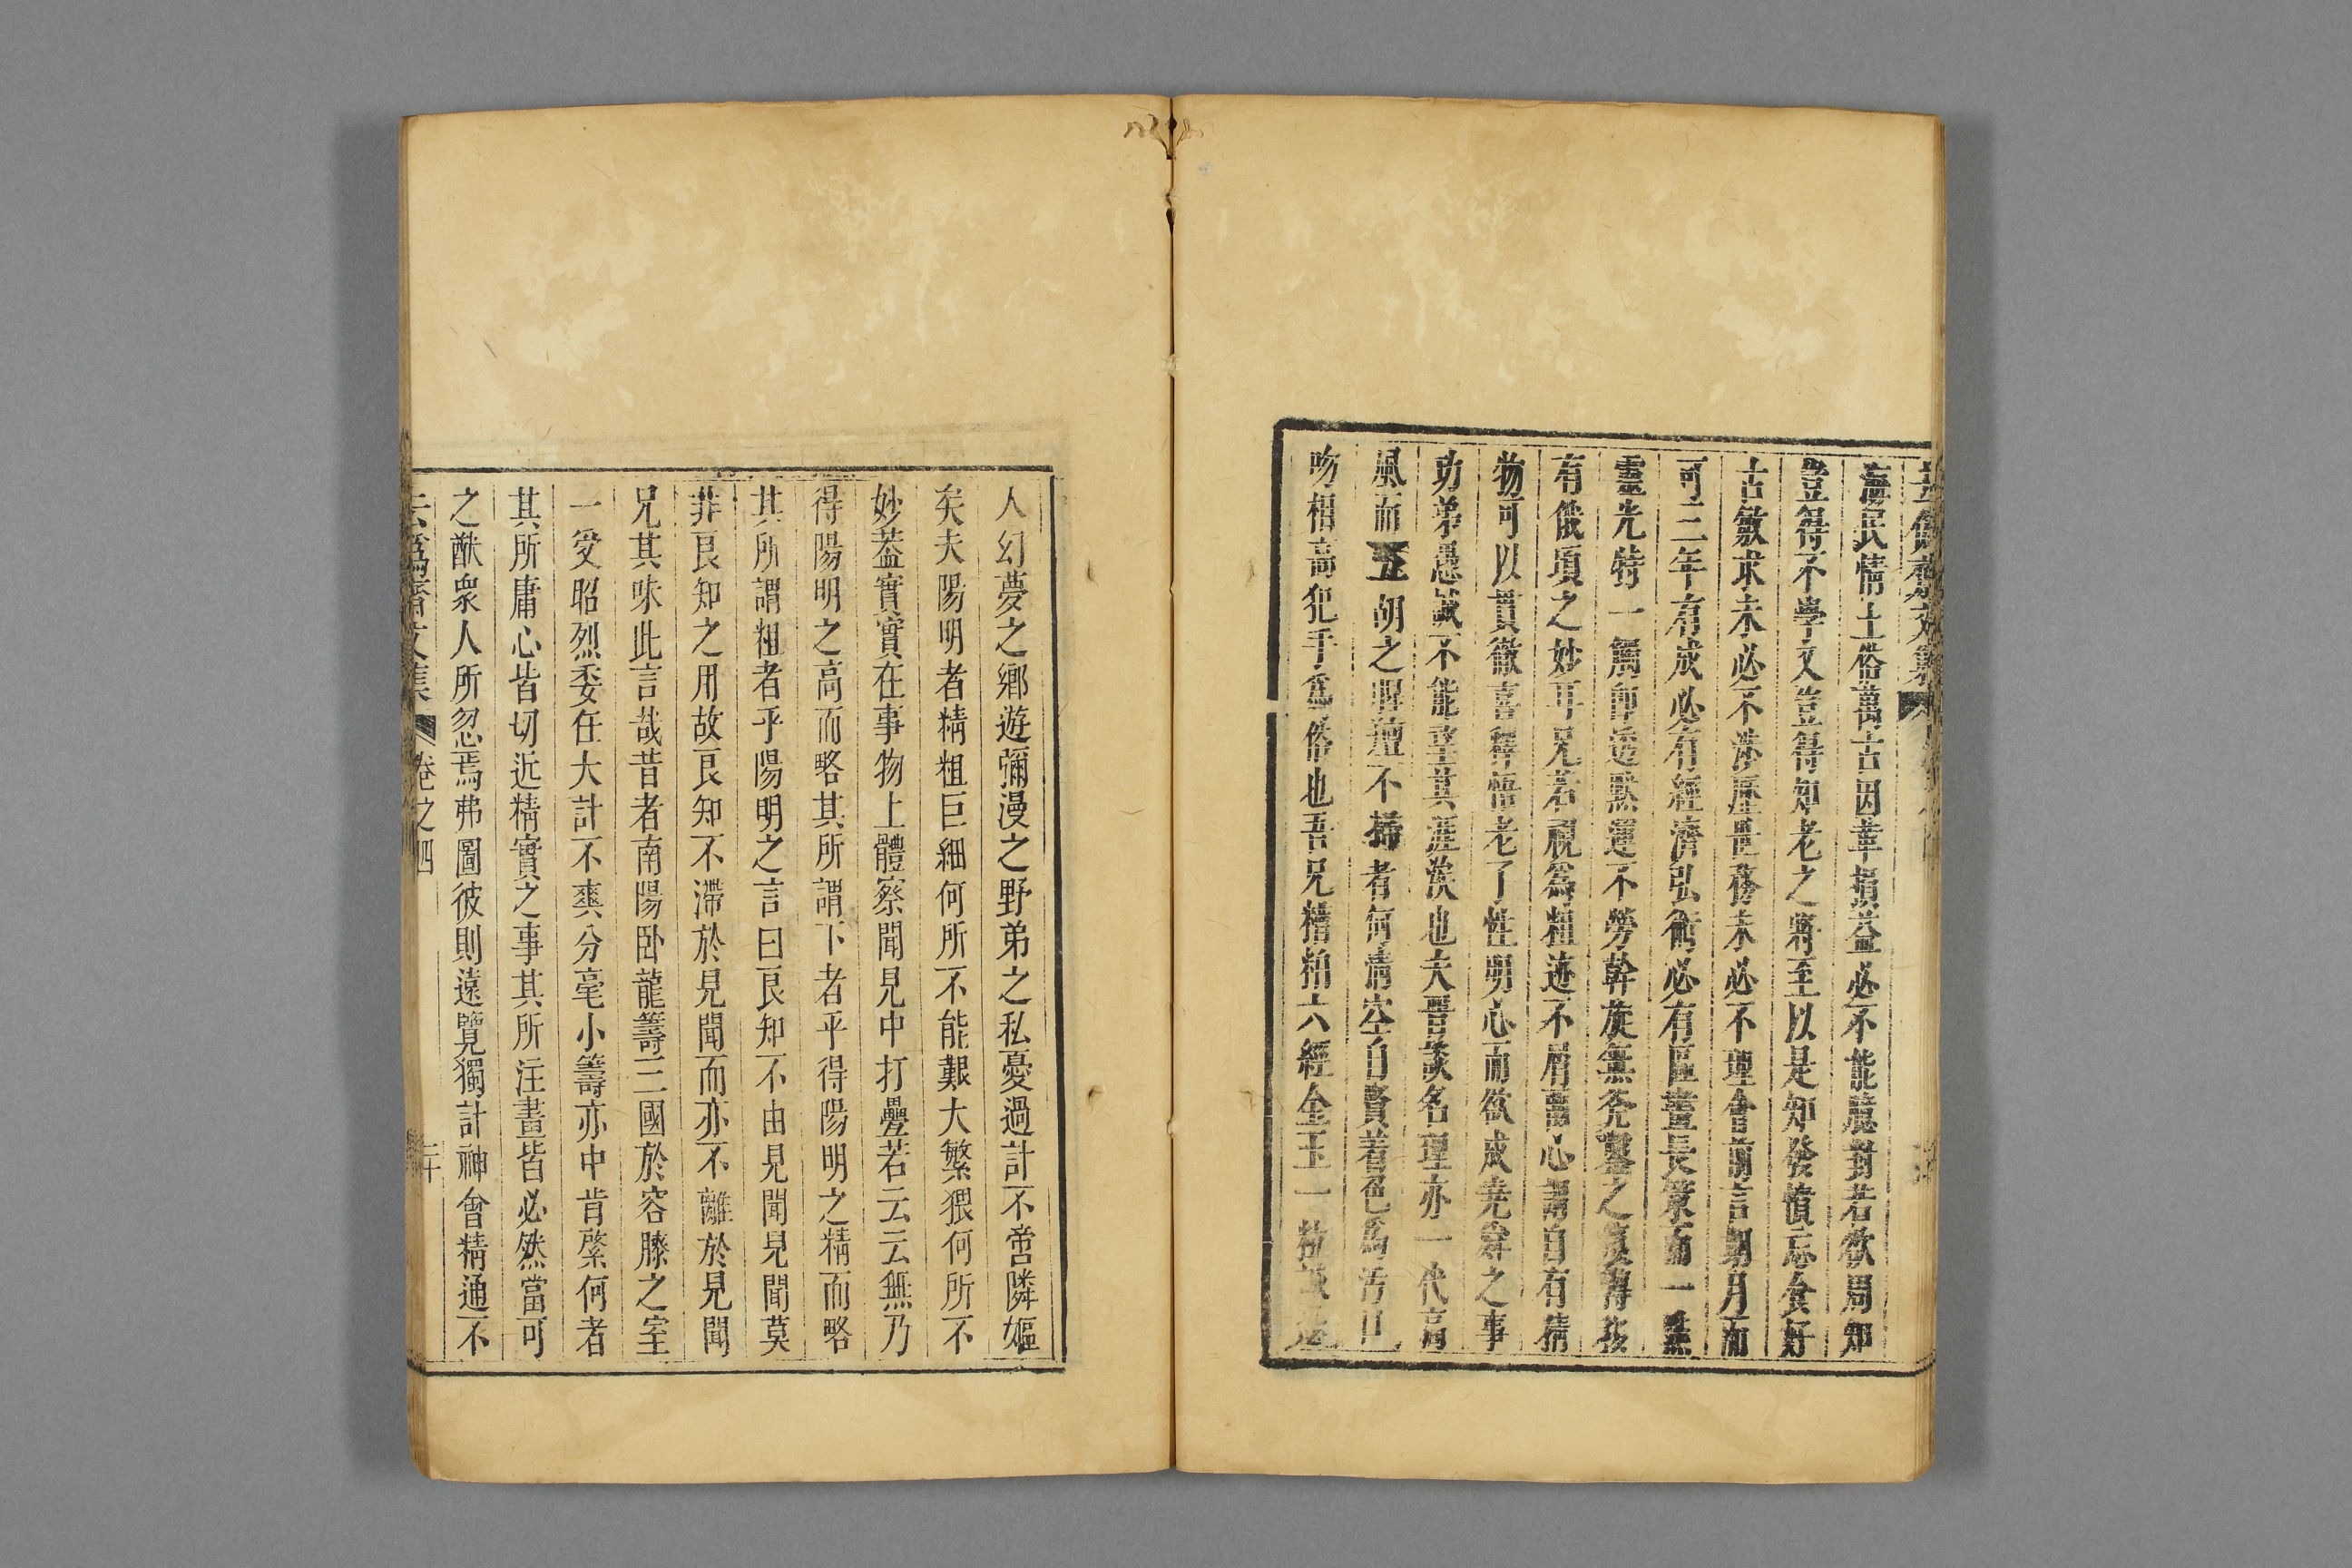 海民情土俗萬古因革損益必不能應對若欲周知
豈得不學文豈得知老之將至以是知發憤忘食好
古敏求未必不涉歷世務未必不理會前言朞月而
可三年有成必有經濟弘術必有區畫長策而一點
靈光特一觸即透默運不勞斡旋無
有俄頃之妙耳兄若視為粗迹不屑留心謂自有精
物可以貫徹喜釋悟老了性明心而欲成堯舜之事
功弟愚誠不能望其涯涘也夫晉談名理亦一代高
風而五胡之腥羶不掃者何清空自賁着色為汚口
吻相高犯手為俗也吾兄糟粕六經金玉一
人幻夢之鄉遊彌漫之野弟之私憂過計不啻隣嫗
矣夫陽明者精粗巨細何所不能艱大繁猥何所不
妙葢實實在事物上體察聞見中打疊若云云無乃
得陽明之高而略其所謂下者乎得陽明之精而略
其所謂粗者乎陽明之言曰良知不由見聞見聞莫
非良知之用故良知不滯於見聞而亦不離於見聞
兄其味此言哉昔者南陽卧龍籌三國於容膝之室
一受昭烈委任大計不爽分毫小籌亦中肯綮何者
其所庸心皆切近精實之事其所注畫皆必然當可
之猷衆人所忽焉弗圖彼則遠覽獨計神會精通不
去偽齋文集 卷之四 二十